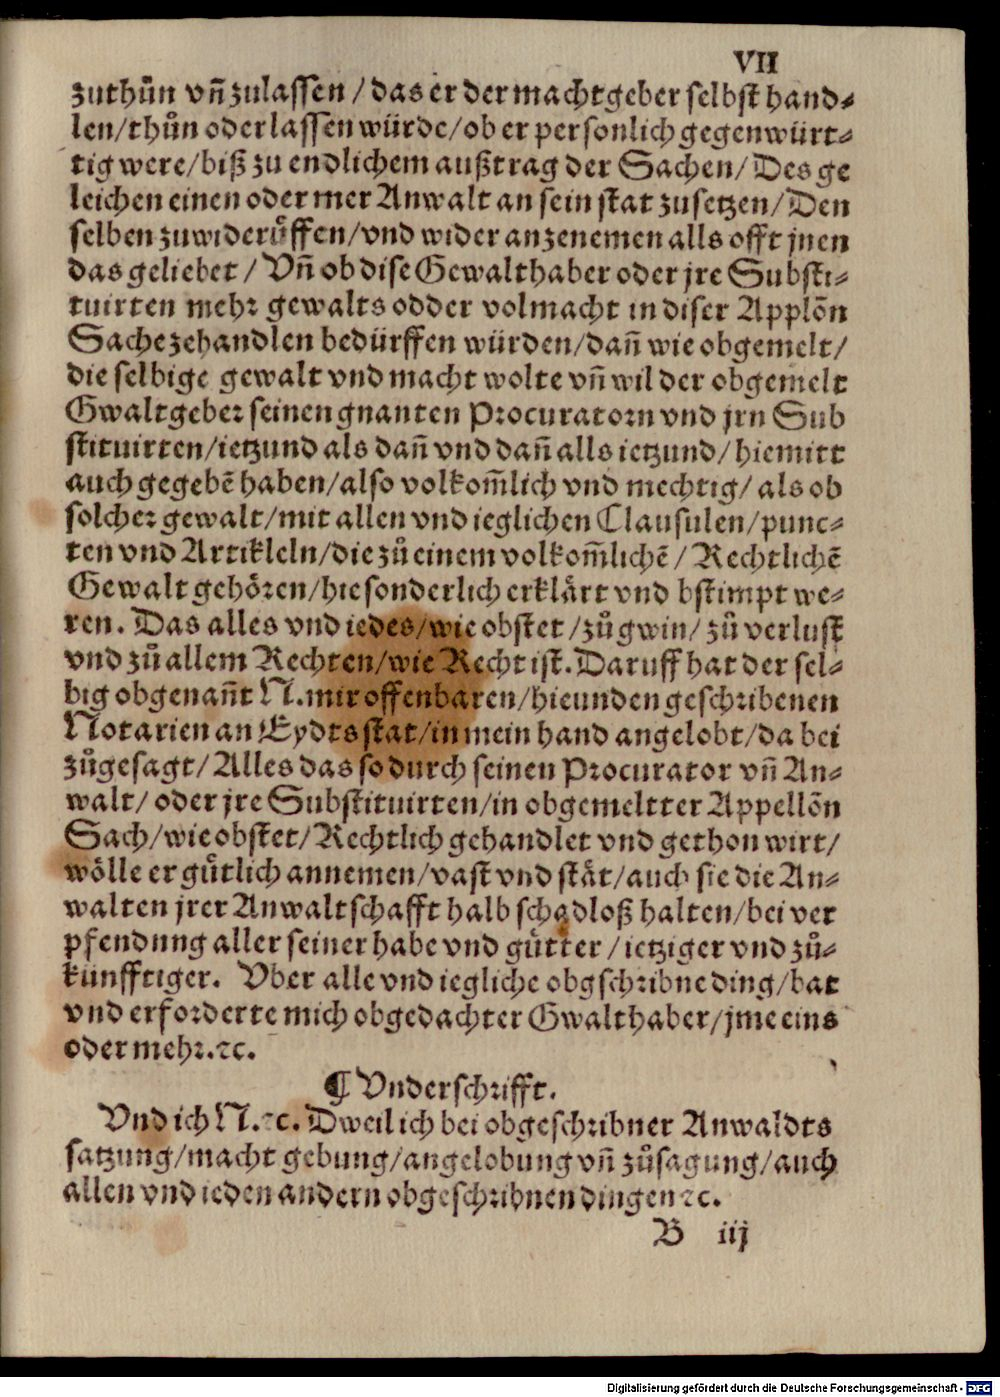 VII
zuthůn vñ zulassen / das er der machtgeber selbst hand⸗
len/thůn oder lassen würde/ob er personlich gegenwürt⸗
tig were/biß zu endlichem außtrag der Sachen/ Des ge
leichen einen oder mer Anwalt an sein stat zusetzen/Den
selben zuwiderůffen/vnd wider anzenemen alls offt jnen
das geliebet / Vñ ob dise Gewalthaber oder jre Substi⸗
tuirten mehr gewalts odder volmacht in diser Applõn
Sache zehandlen bedürffen würden/dañ wie obgemelt/
die selbige gewalt vnd macht wolte vñ wil der obgemelt
Gwaltgeber seinen gnanten Procuratorn vnd jrn Sub
stituirten/ietzund als dañ vnd dañ alls ietzund/hiemitt
auch gegebẽ haben/also volkom̃lich vnd mechtig/ als ob
solcher gewalt/mit allen vnd ieglichen Clausulen/punc⸗
ten vnd Artikleln/die zů einem volkom̃lichẽ / Rechtlichẽ
Gewalt gehören/hie sonderlich erklärt vnd bstimpt we⸗
ren. Das alles vnd iedes/wie obstet /zů gwin/ zů verlust
vnd zů allem Rechten/wie Recht ist. Daruff hat der sel⸗
big obgenañt N. mir offenbaren/hieunden geschribenen
Notarien an Eydts stat/in mein hand angelobt/da bei
zůgesagt/ Alles das so durch seinen Procurator vñ An⸗
walt/ oder jre Substituirten/in obgemeltter Appellõn
Sach/wie obstet/Rechtlich gehandlet vnd gethon wirt/
wölle er gůtlich annemen/vast vnd stät/auch sie die An⸗
walten jrer Anwaltschafft halb schadloß halten/bei ver
pfendung aller seiner habe vnd gůtter / ietziger vnd zů⸗
künfftiger. Vber alle vnd iegliche obgschribne ding/bat
vnd erforderte mich obgedachter Gwalthaber/jme eins
oder mehr.ꝛc.
¶ Vnderschrifft.
Vnd ich N.ꝛc. Dweil ich bei obgeschribner Anwaldts
satzung/macht gebung/angelobung vñ zůsagung/auch
allen vnd ieden andern obgeschribnen dingen ꝛc.
B iij
Digitalisierung gefördert durch die Deutsche Forschungsgemeinschaft - DFG